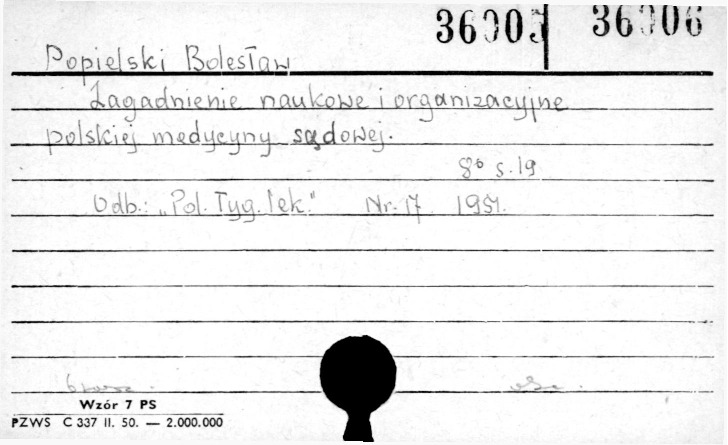 36005 36006
Popielski Bolesław
Zagadnienie naukowe i organizacyjne
polskiej medycyny sądowej.
8° s. 19
Odb.: "Pol. Tyg. lek." Nr. 17 1951.
Wzór 7 PS
PZWS C 337 II. 50. — 2.000.000